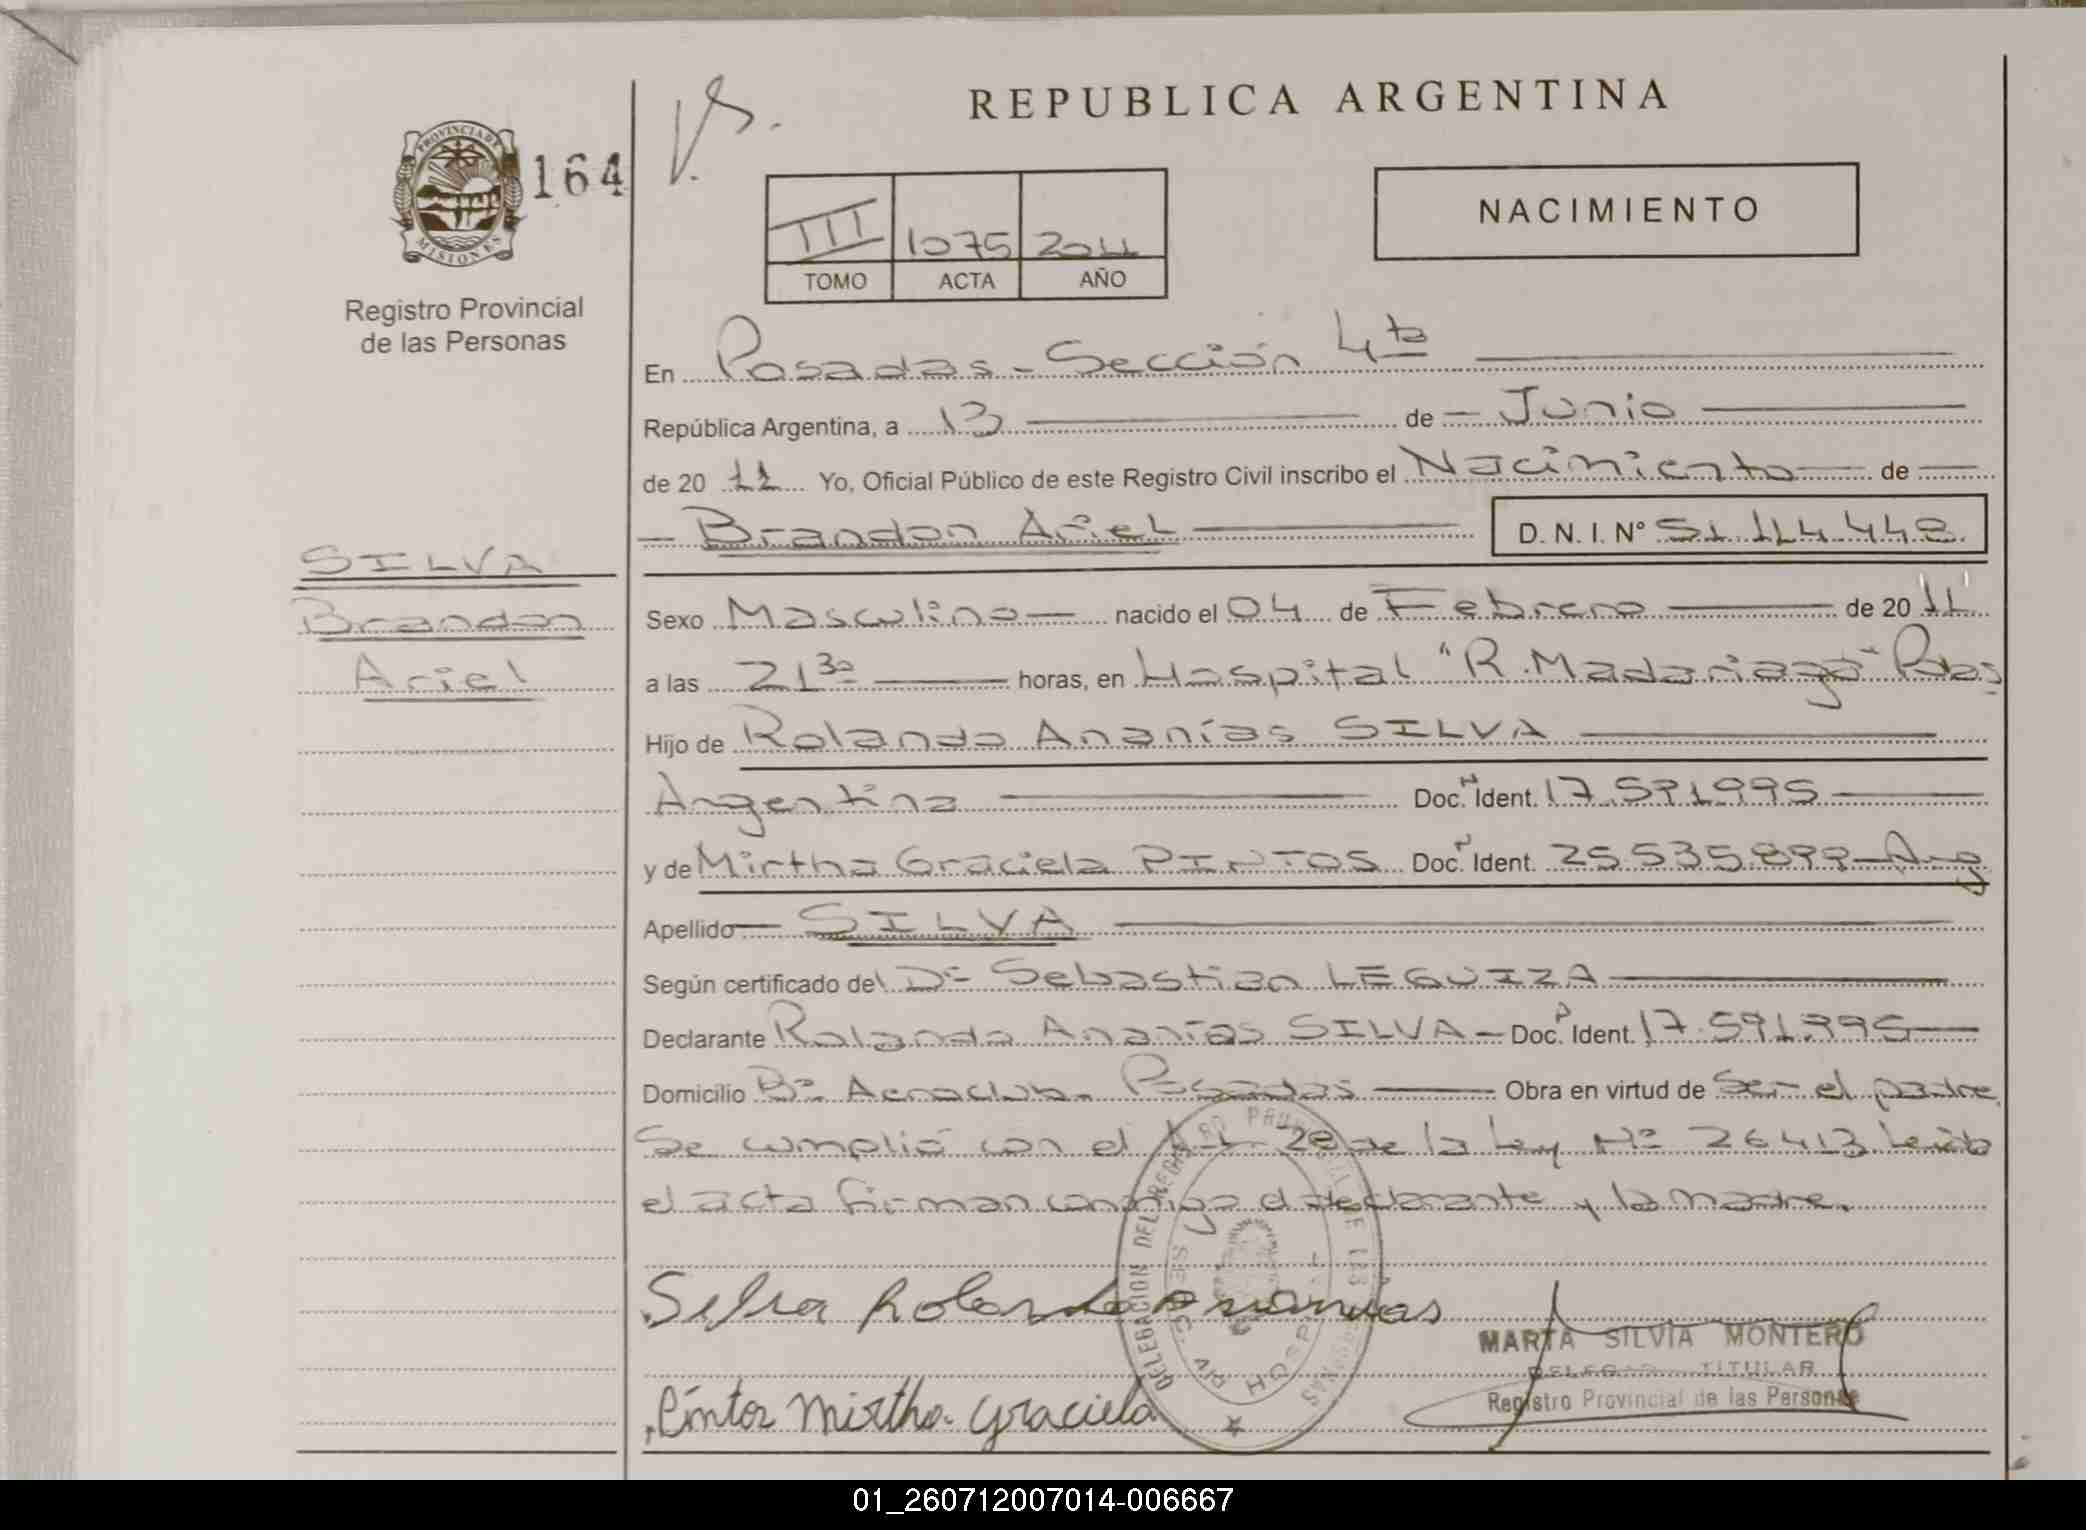 REPUBLICA ARGENTINA
PROVINCIA DE
MISIONES
164
Registro Provincial
de las Personas
III 1075 2011
TOMO ACTA AÑO
NACIMIENTO
En Posadas - Sección 4ta
República Argentina, a 13 de Junio
de 20 11 Yo, Oficial Público de este Registro Civil inscribo el Nacimiento de
Brandon Ariel D. N. I. Nº 51.114.448
SILVA
Brandon
Ariel
Sexo Masculino nacido el 04 de Febrero de 20 11
a las 21 30 horas, en Hospital "R. Madariaga" Pdas
Hijo de Rolando Ananías SILVA
Argentina Doc. N Ident. 17.591.995
y de Mirtha Graciela PINTOS Doc. N Ident. 25.535.899 - Arg
Apellido SILVA
Según certificado del Dr Sebastian LEGUIZA
Declarante Rolando Ananías SILVA - Doc. Ident. 17.591.995
Domicilio Bº Aeroclub. Posadas Obra en virtud de Ser el padre.
Se cumplió con el 28 de la Ley Nº 26413 Leída
el acta firman conmigo el declarante y la madre.
Silva Rolando Ananías
MARTA SILVIA MONTERO
TITULAR
Registro Provincial de las Personas
Pintos Mirtha Graciela
DELEGACION DEL REGISTRO PROVINCIAL DE LAS PERSONAS
HOSPITAL
01_260712007014-006667